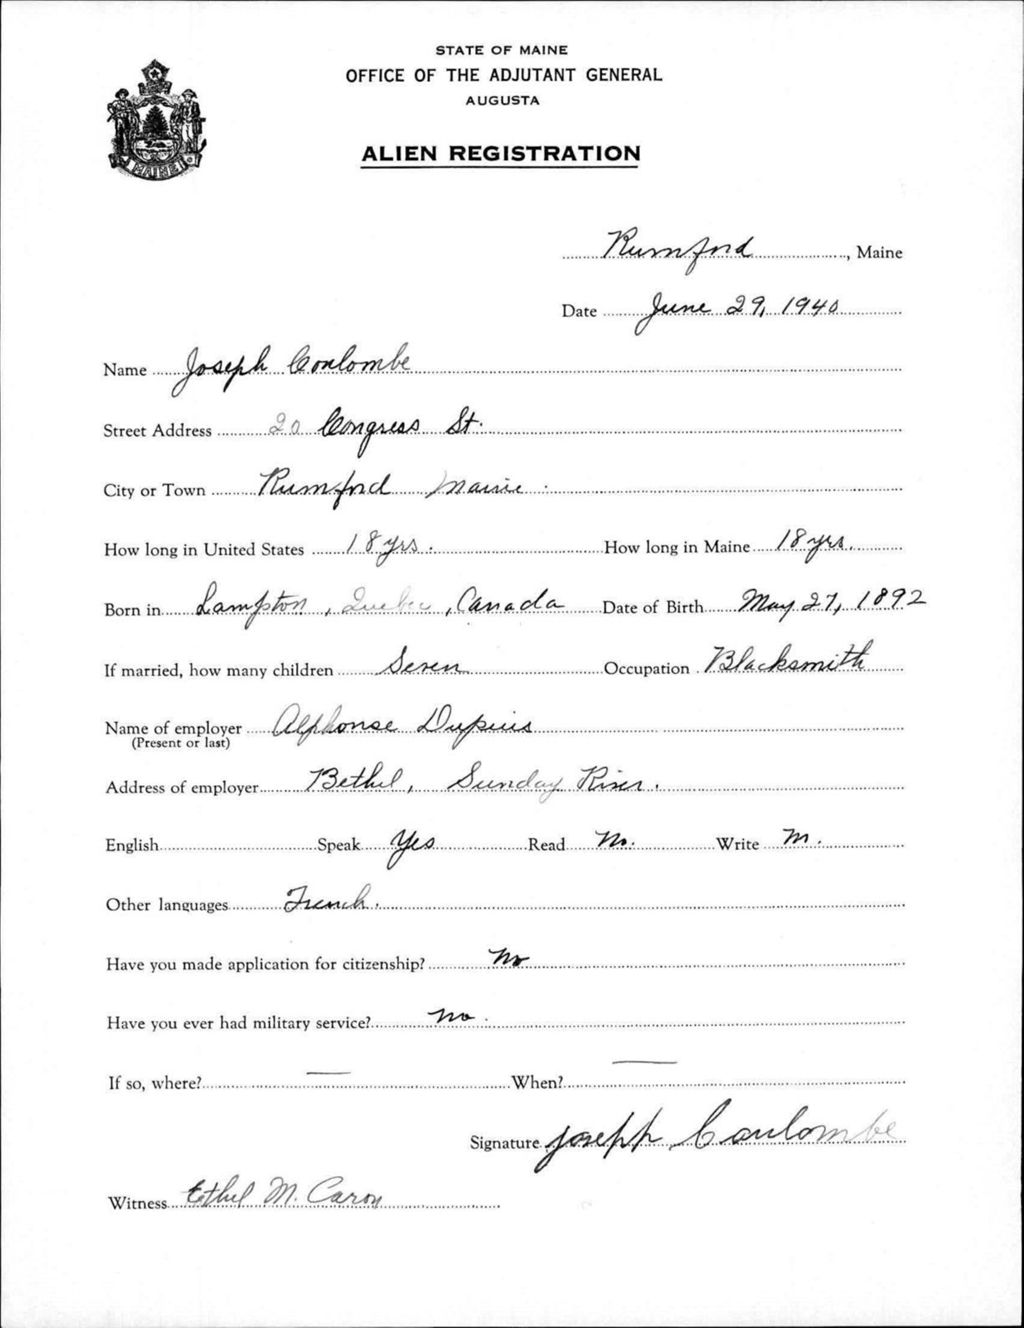 STATE OF MAINE
OFFICE OF THE ADJUTANT GENERAL
AUGUSTA
ALIEN REGISTRATION
MAINE
Rumford, Maine
Date June 29, 1940
Name Joseph Coulombe
Street Address 20 Congress St.
City or Town Rumford Maine.
How long in United States 18 yrs. How long in Maine 18 yrs.
Born in Lampton, Quebec, Canada Date of Birth May 27, 1892
If married, how many children Seven Occupation Blacksmith
Name of employer Alphonse Dupuis
(Present or last)
Address of employer Bethel, Sunday River.
English Speak Yes Read No. Write No.
Other languages French.
Have you made application for citizenship? No
Have you ever had military service? No.
If so, where? — When? —
Signature Joseph Coulombe
Witness Ethel M. Caron